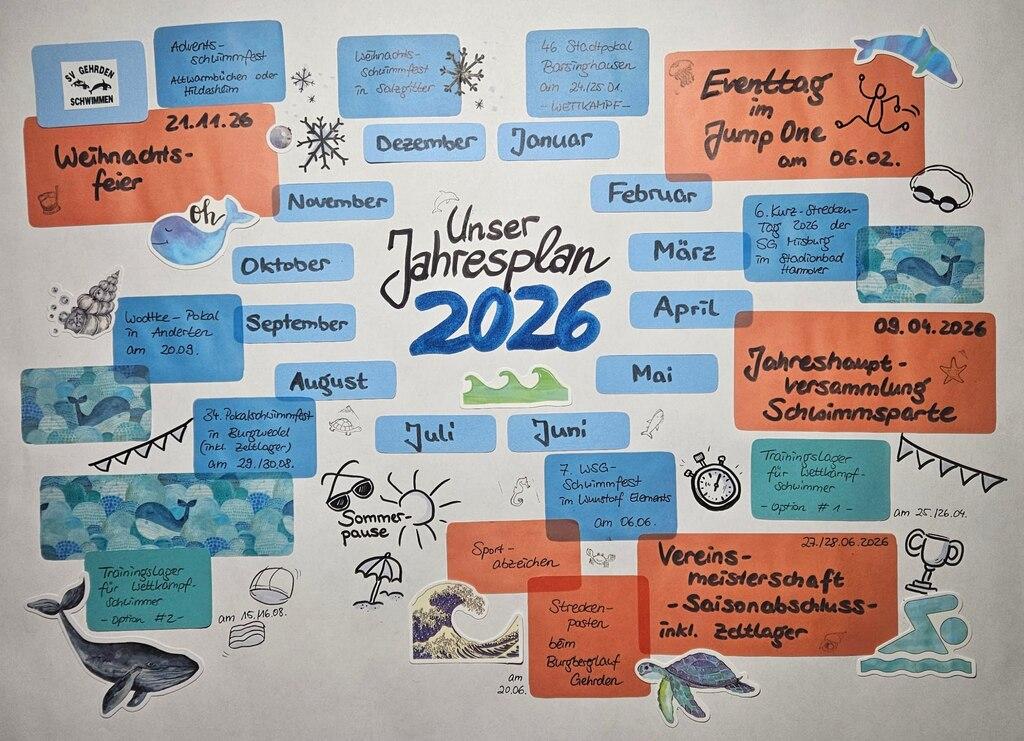 Unser
Jahresplan
2026
SV GEHRDEN
SCHWIMMEN
Januar
46. Stadtpokal
Barsinghausen
am 24./25.01.
- WETTKAMPF -
Februar
Eventtag
im
Jump One
am 06.02.
März
6. Kurz-Strecken-
Tag 2026 der
SG Misburg
im Stadionbad
Hannover
April
09.04.2026
Jahreshaupt-
versammlung
Schwimmsparte
Trainingslager
für Wettkampf-
schwimmer
- Option #1 -
am 25./26.04.
Mai
Juni
7. WSG-
Schwimmfest
im Wunstorf Elements
am 06.06.
27./28.06.2026
Vereins-
meisterschaft
- Saisonabschluss -
inkl. Zeltlager
Sport-
abzeichen
Strecken-
posten
beim
Burgberglauf
Gehrden
am
20.06.
Juli
Sommer-
pause
August
34. Pokalschwimmfest
in Burgwedel
(inkl. Zeltlager)
am 29./30.08.
Trainingslager
für Wettkampf-
schwimmer
- Option #2 -
am 15./16.08.
September
Wodtke-Pokal
in Anderten
am 20.09.
Oktober
November
oh
21.11.26
Weihnachts-
feier
Dezember
Advents-
schwimmfest
Altwarmbüchen oder
Hildesheim
Weihnachts-
schwimmfest
in Salzgitter